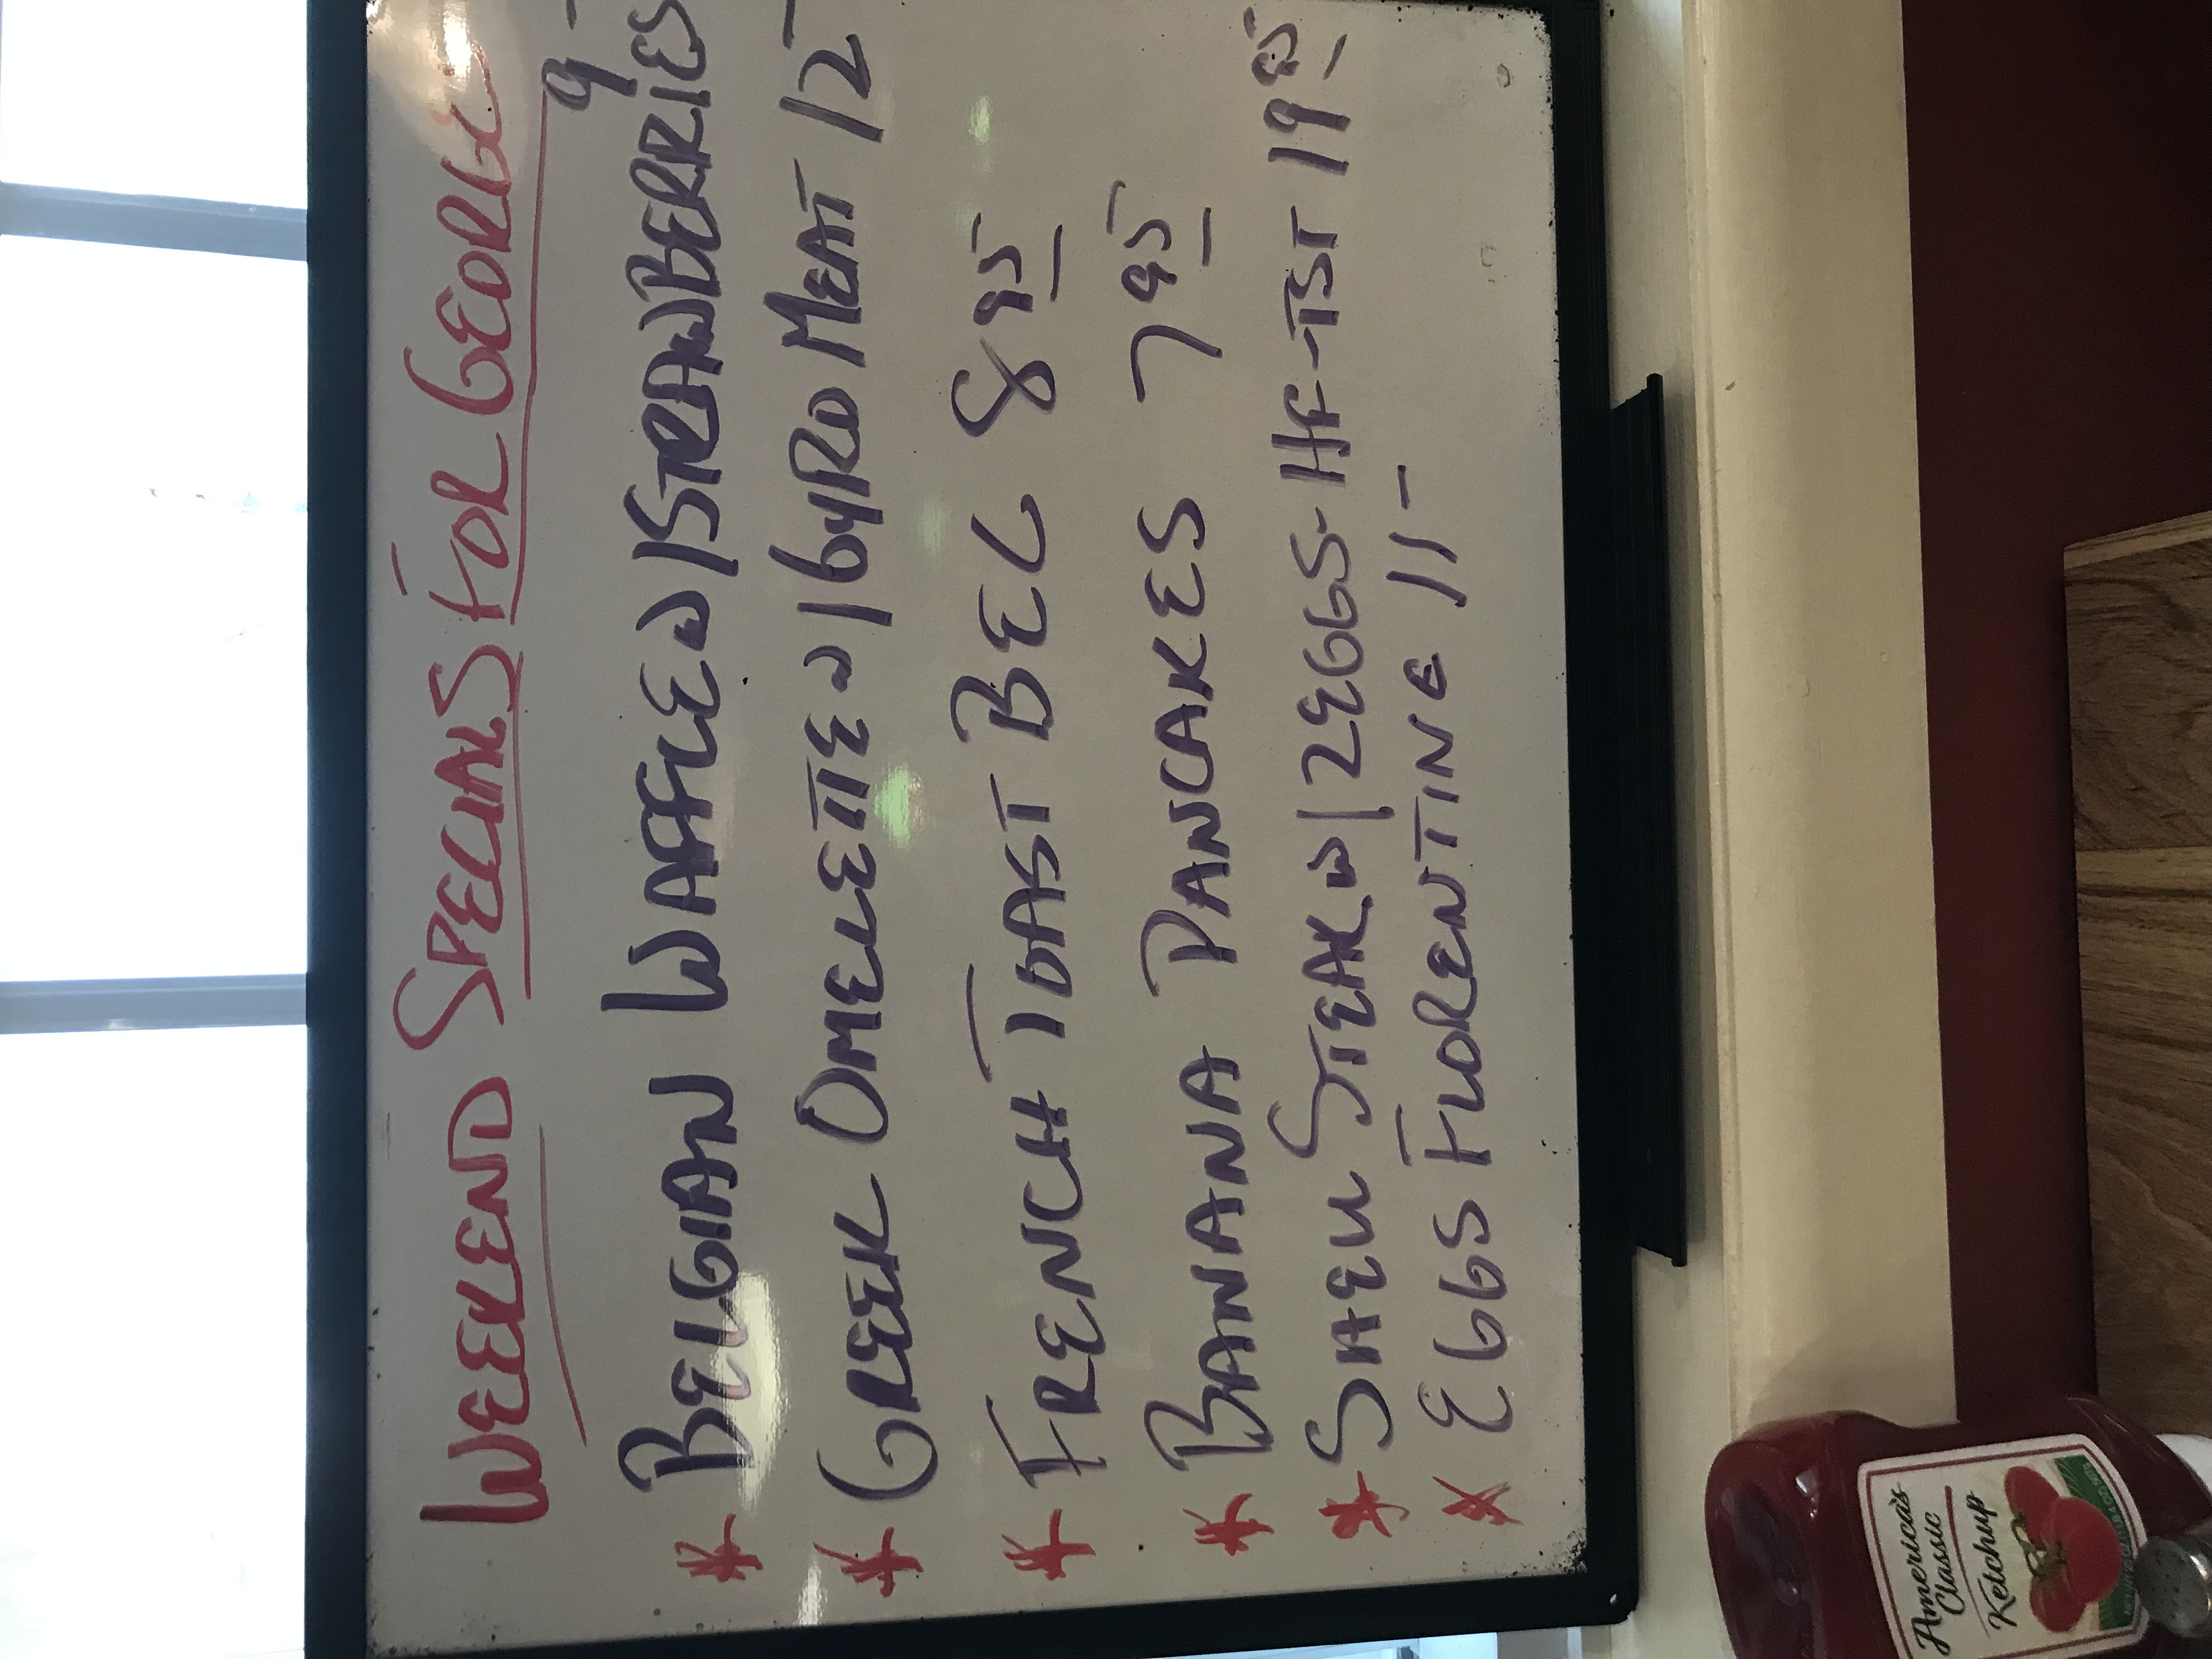 WEEKEND SPECIALS FOR GEORGE
9-
* BELGIAN WAFFLE W/STRAWBERRIES
* GREEK OMELETTE W/GYRO MEAT 12-
* FRENCH TOAST BEL 8 95
* BANANA PANCAKES 7 95
* SHELL STEAK W/2EGGS-HF-TST 19 95
* EGGS FLORENTINE 11-
America's
Classic
Ketchup